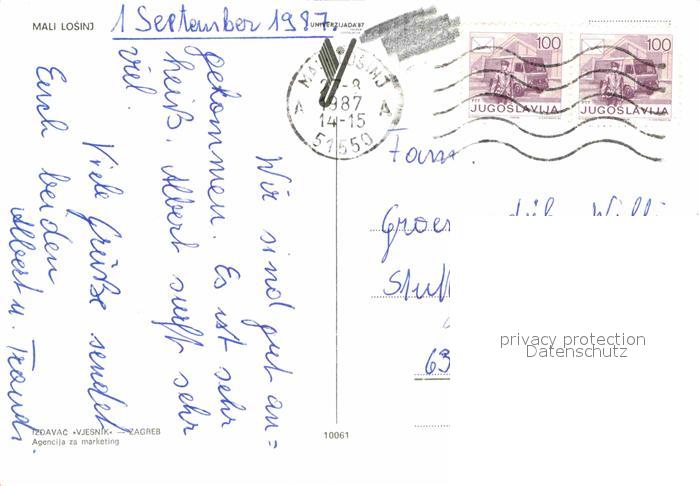 MALI LOŠINJ
1 September 1987.
UNIVERZIJADA'87
Wir sind gut an=
gekommen. Es ist sehr
heiß. Albert surft sehr
viel.
Viele Grüße sendet
Euch beiden
Albert u. Traudi.
IZDAVAČ »VJESNIK« — ZAGREB
Agencija za marketing
10061
MALI LOŠINJ
27-8
1987
14-15
A A
51550
100
JUGOSLAVIJA
100
JUGOSLAVIJA
Fam.
63
privacy protection
Datenschutz